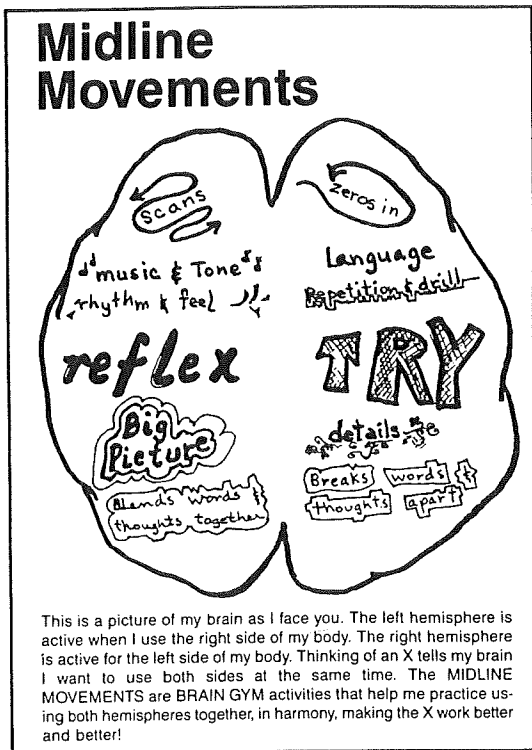 Midline
Movements
scans
music & Tone
rhythm & feel
reflex
Big
Picture
Blends words &
thoughts together
zeros in
Language
Repetition & drill
TRY
details
Breaks words &
thoughts apart
This is a picture of my brain as I face you. The left hemisphere is
active when I use the right side of my body. The right hemisphere
is active for the left side of my body. Thinking of an X tells my brain
I want to use both sides at the same time. The MIDLINE
MOVEMENTS are BRAIN GYM activities that help me practice us-
ing both hemispheres together, in harmony, making the X work better
and better!